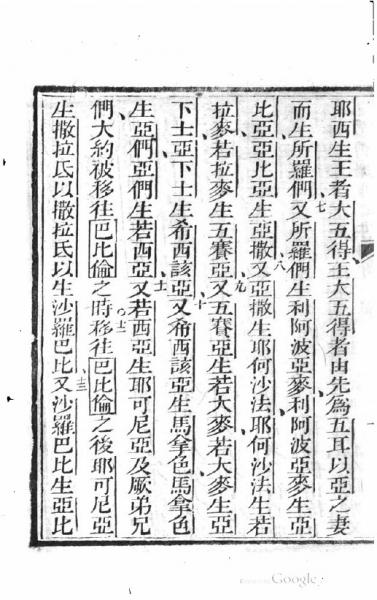 耶西生王者大五得王大五得者由先為五耳以亞之妻
七而生所羅們又所羅們生利阿波亞麥利阿波亞麥生亞
比亞亞比亞生亞撒八又亞撒生耶何沙法耶何沙法生若
拉麥若拉麥生五賽亞九又五賽亞生若大麥若大麥生亞
下士亞下士生希西該亞十又希西該亞生馬拿色馬拿色
生亞們亞們生若西亞十一又若西亞生耶可尼亞及厥弟兄
們大約被移往巴比倫之時十二移往巴比倫之後耶可尼亞
生撒拉氐以撒拉氐以生沙羅巴比十三又沙羅巴比生亞比
Google